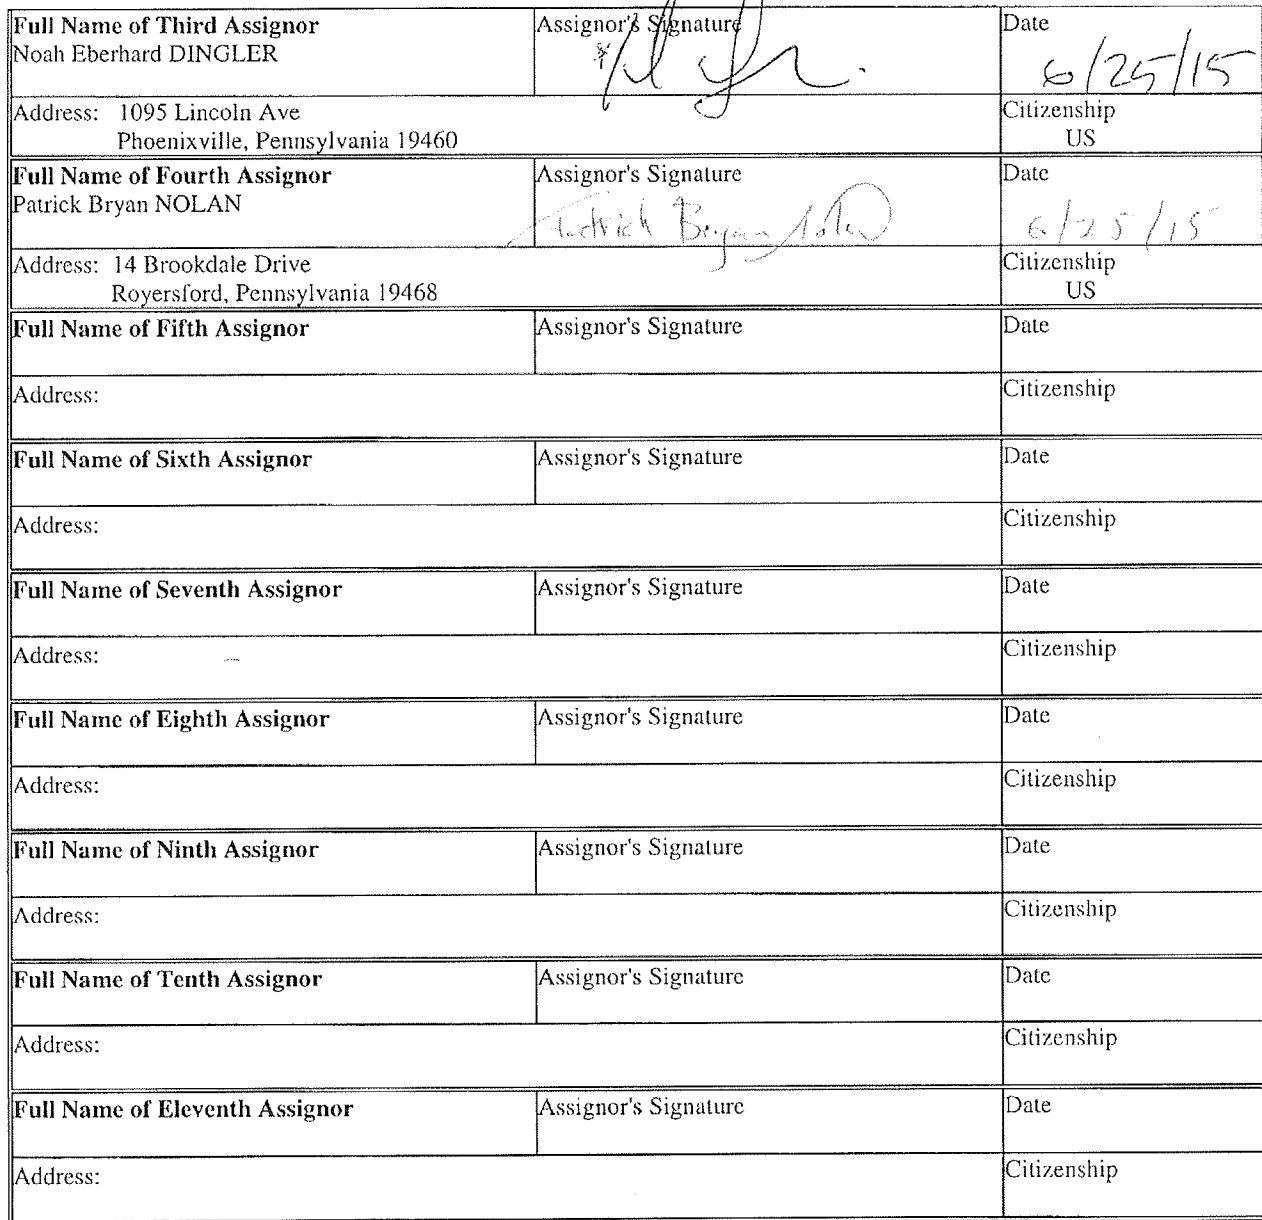 Full Name of Third Assignor Assignor's Signature Date
Noah Eberhard DINGLER 6/25/15
Address: 1095 Lincoln Ave Citizenship
Phoenixville, Pennsylvania 19460 US
Full Name of Fourth Assignor Assignor's Signature Date
Patrick Bryan NOLAN Patrick Bryan Nolan 6/25/15
Address: 14 Brookdale Drive Citizenship
Royersford, Pennsylvania 19468 US
Full Name of Fifth Assignor Assignor's Signature Date
Address: Citizenship
Full Name of Sixth Assignor Assignor's Signature Date
Address: Citizenship
Full Name of Seventh Assignor Assignor's Signature Date
Address: Citizenship
Full Name of Eighth Assignor Assignor's Signature Date
Address: Citizenship
Full Name of Ninth Assignor Assignor's Signature Date
Address: Citizenship
Full Name of Tenth Assignor Assignor's Signature Date
Address: Citizenship
Full Name of Eleventh Assignor Assignor's Signature Date
Address: Citizenship